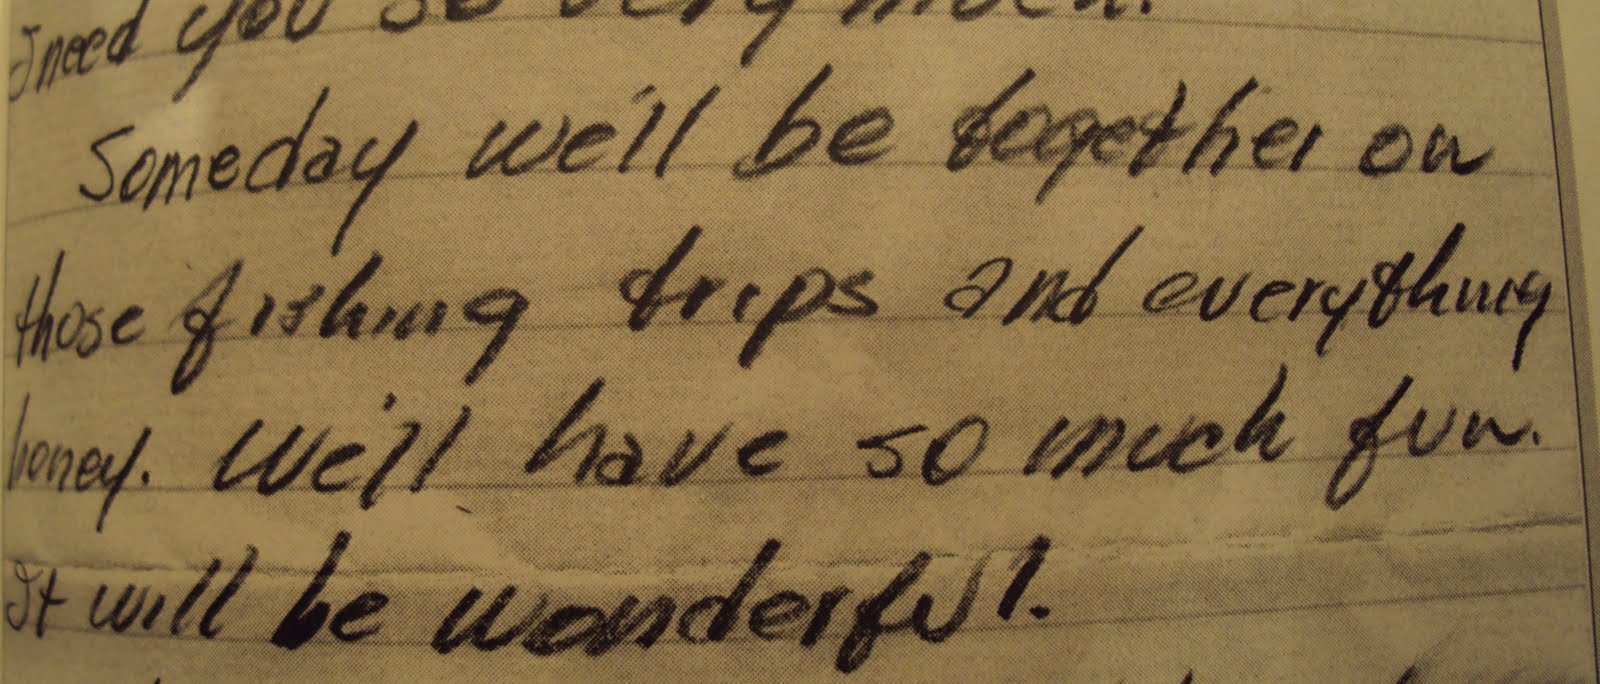 I need you so very much.
Someday we'll be together on
those fishing trips and everything
honey. We'll have so much fun.
It will be wonderful.